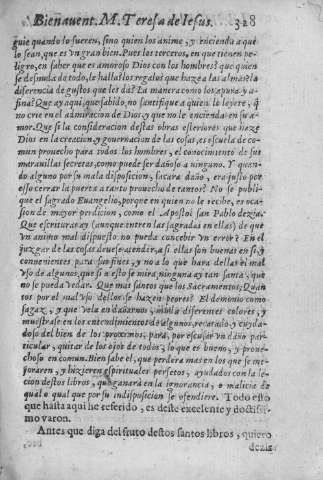 Bienauent. M. Teresa de Iesus. 328
guie quando lo fueren, sino quien los anime, y encienda a que
lo sean, que es vn gran bien. Pues los terceros, en que tienen pe-
ligro, en saber que es amoroso Dios con los hombres? que quien
se desnuda de todo, le halla? los regalos que haze a las almas? la
diferencia de gustos que les da? La manera como los apura y a-
fina? Que ay aqui, que sabido, no santifique a quien lo leyere, q̃
no crie en el admiracion de Dios, y que no le encienda en su a-
mor. Que si la consideracion destas obras esteriores que haze
Dios en la creacion, y gouernacion de las cosas, es escuela de co-
mun prouecho para todos los hombres, el conocimiento de sus
marauillas secretas, como puede ser dañoso a ninguno. Y quan-
do alguno por su mala disposicion, sacara daño, era justo por
esso cerrar la puerta a tanto prouecho de tantos? No se publi-
que el sagrado Euangelio, porque en quien no le recibe, es oca-
sion de mayor perdicion, como el Apostol san Pablo dezia.
Que escrituras ay (aunque entren las sagradas en ellas) de que
vn animo mal dispuesto no pueda concebir vn error? En el
juzgar de las cosas deuese atender, a si ellas son buenas en si, y
conuenientes para sus fines, y no a lo que hara dellas el mal
vso de algunos, que si a esto se mira, ninguna ay tan santa, que
no se pueda vedar. Que mas santos que los Sacramentos? Quan
tos por el mal vso dellos se hazen peores? El demonio como
sagaz, y que vela en dañarnos, muda diferentes colores, y
muestrase en los entendimientos de algunos, recatado, y cuyda-
doso del bien de los proximos, para, por escusar vn daño par-
ticular, quitar de los ojos de todos, lo que es bueno, y proue-
choso en comun. Bien sabe el, que perdera mas en los que se me-
joraren, y hizieren espirituales perfetos, ayudados con la le-
cion destos libros, que ganarà en la ignorancia, o malicia de
qual o qual que por su indisposicion se ofendiere. Todo esto
que hasta aqui he referido, es deste excelente y doctissi-
mo varon.
Antes que diga del fruto destos santos libros, quiero
dezir